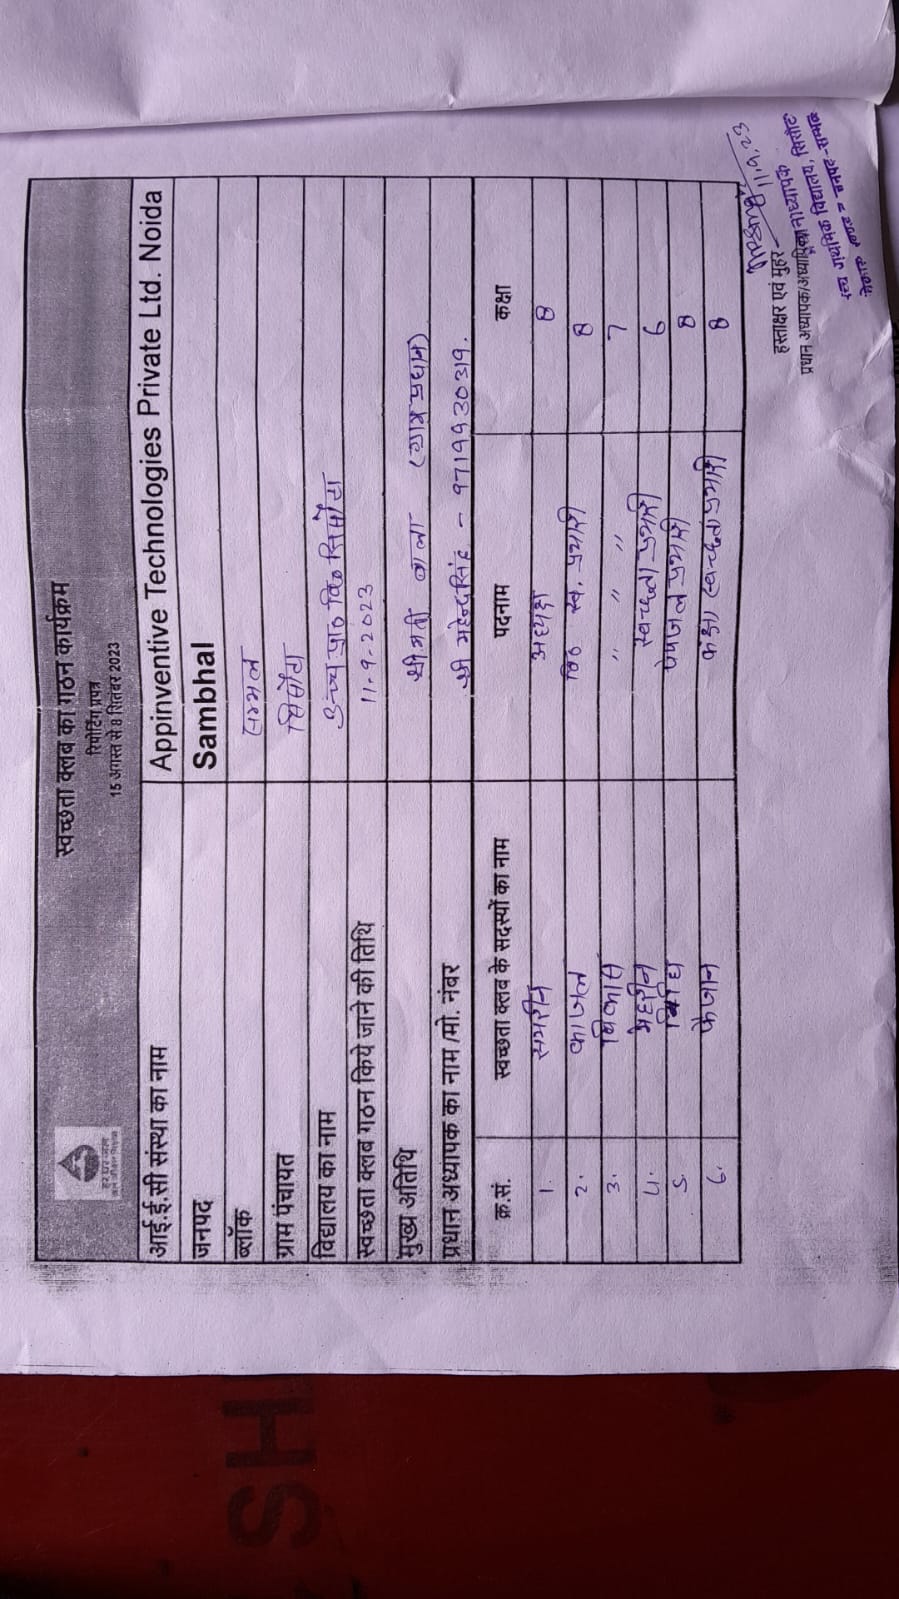 स्वच्छता क्लब का गठन कार्यक्रम
रिपोर्टिंग प्रपत्र
15 अगस्त से 8 सितंबर 2023
हर घर जल
जल जीवन मिशन
आई.ई.सी संस्था का नाम Appinventive Technologies Private Ltd. Noida
जनपद Sambhal
ब्लॉक सम्भल
ग्राम पंचायत सिसौटा
विद्यालय का नाम उच्च प्रा० वि० सिसौटा
स्वच्छता क्लब गठन किये जाने की तिथि 11.9.2023
मुख्य अतिथि श्रीमती बाला (ग्राम प्रधान)
प्रधान अध्यापक का नाम /मो. नंबर श्री महेन्द्र सिंह - 9719930319.
क्र.सं. स्वच्छता क्लब के सदस्यों का नाम पदनाम कक्षा
1. समरीन अध्यक्ष 8
2. काजल वि० स्व. प्रभारी 8
3. विकास " " " 7
4. मेहरीन स्वच्छता प्रभारी 6
5. पेयजल प्रभारी 8
6. फैजान कक्षा स्वच्छता प्रभारी 8
11.9.23
हस्ताक्षर एवं मुहर
प्रधान अध्यापक/अध्यापिका
उच्च प्राथमिक विद्यालय, सिसौटा
जनपद-सम्भल
SH